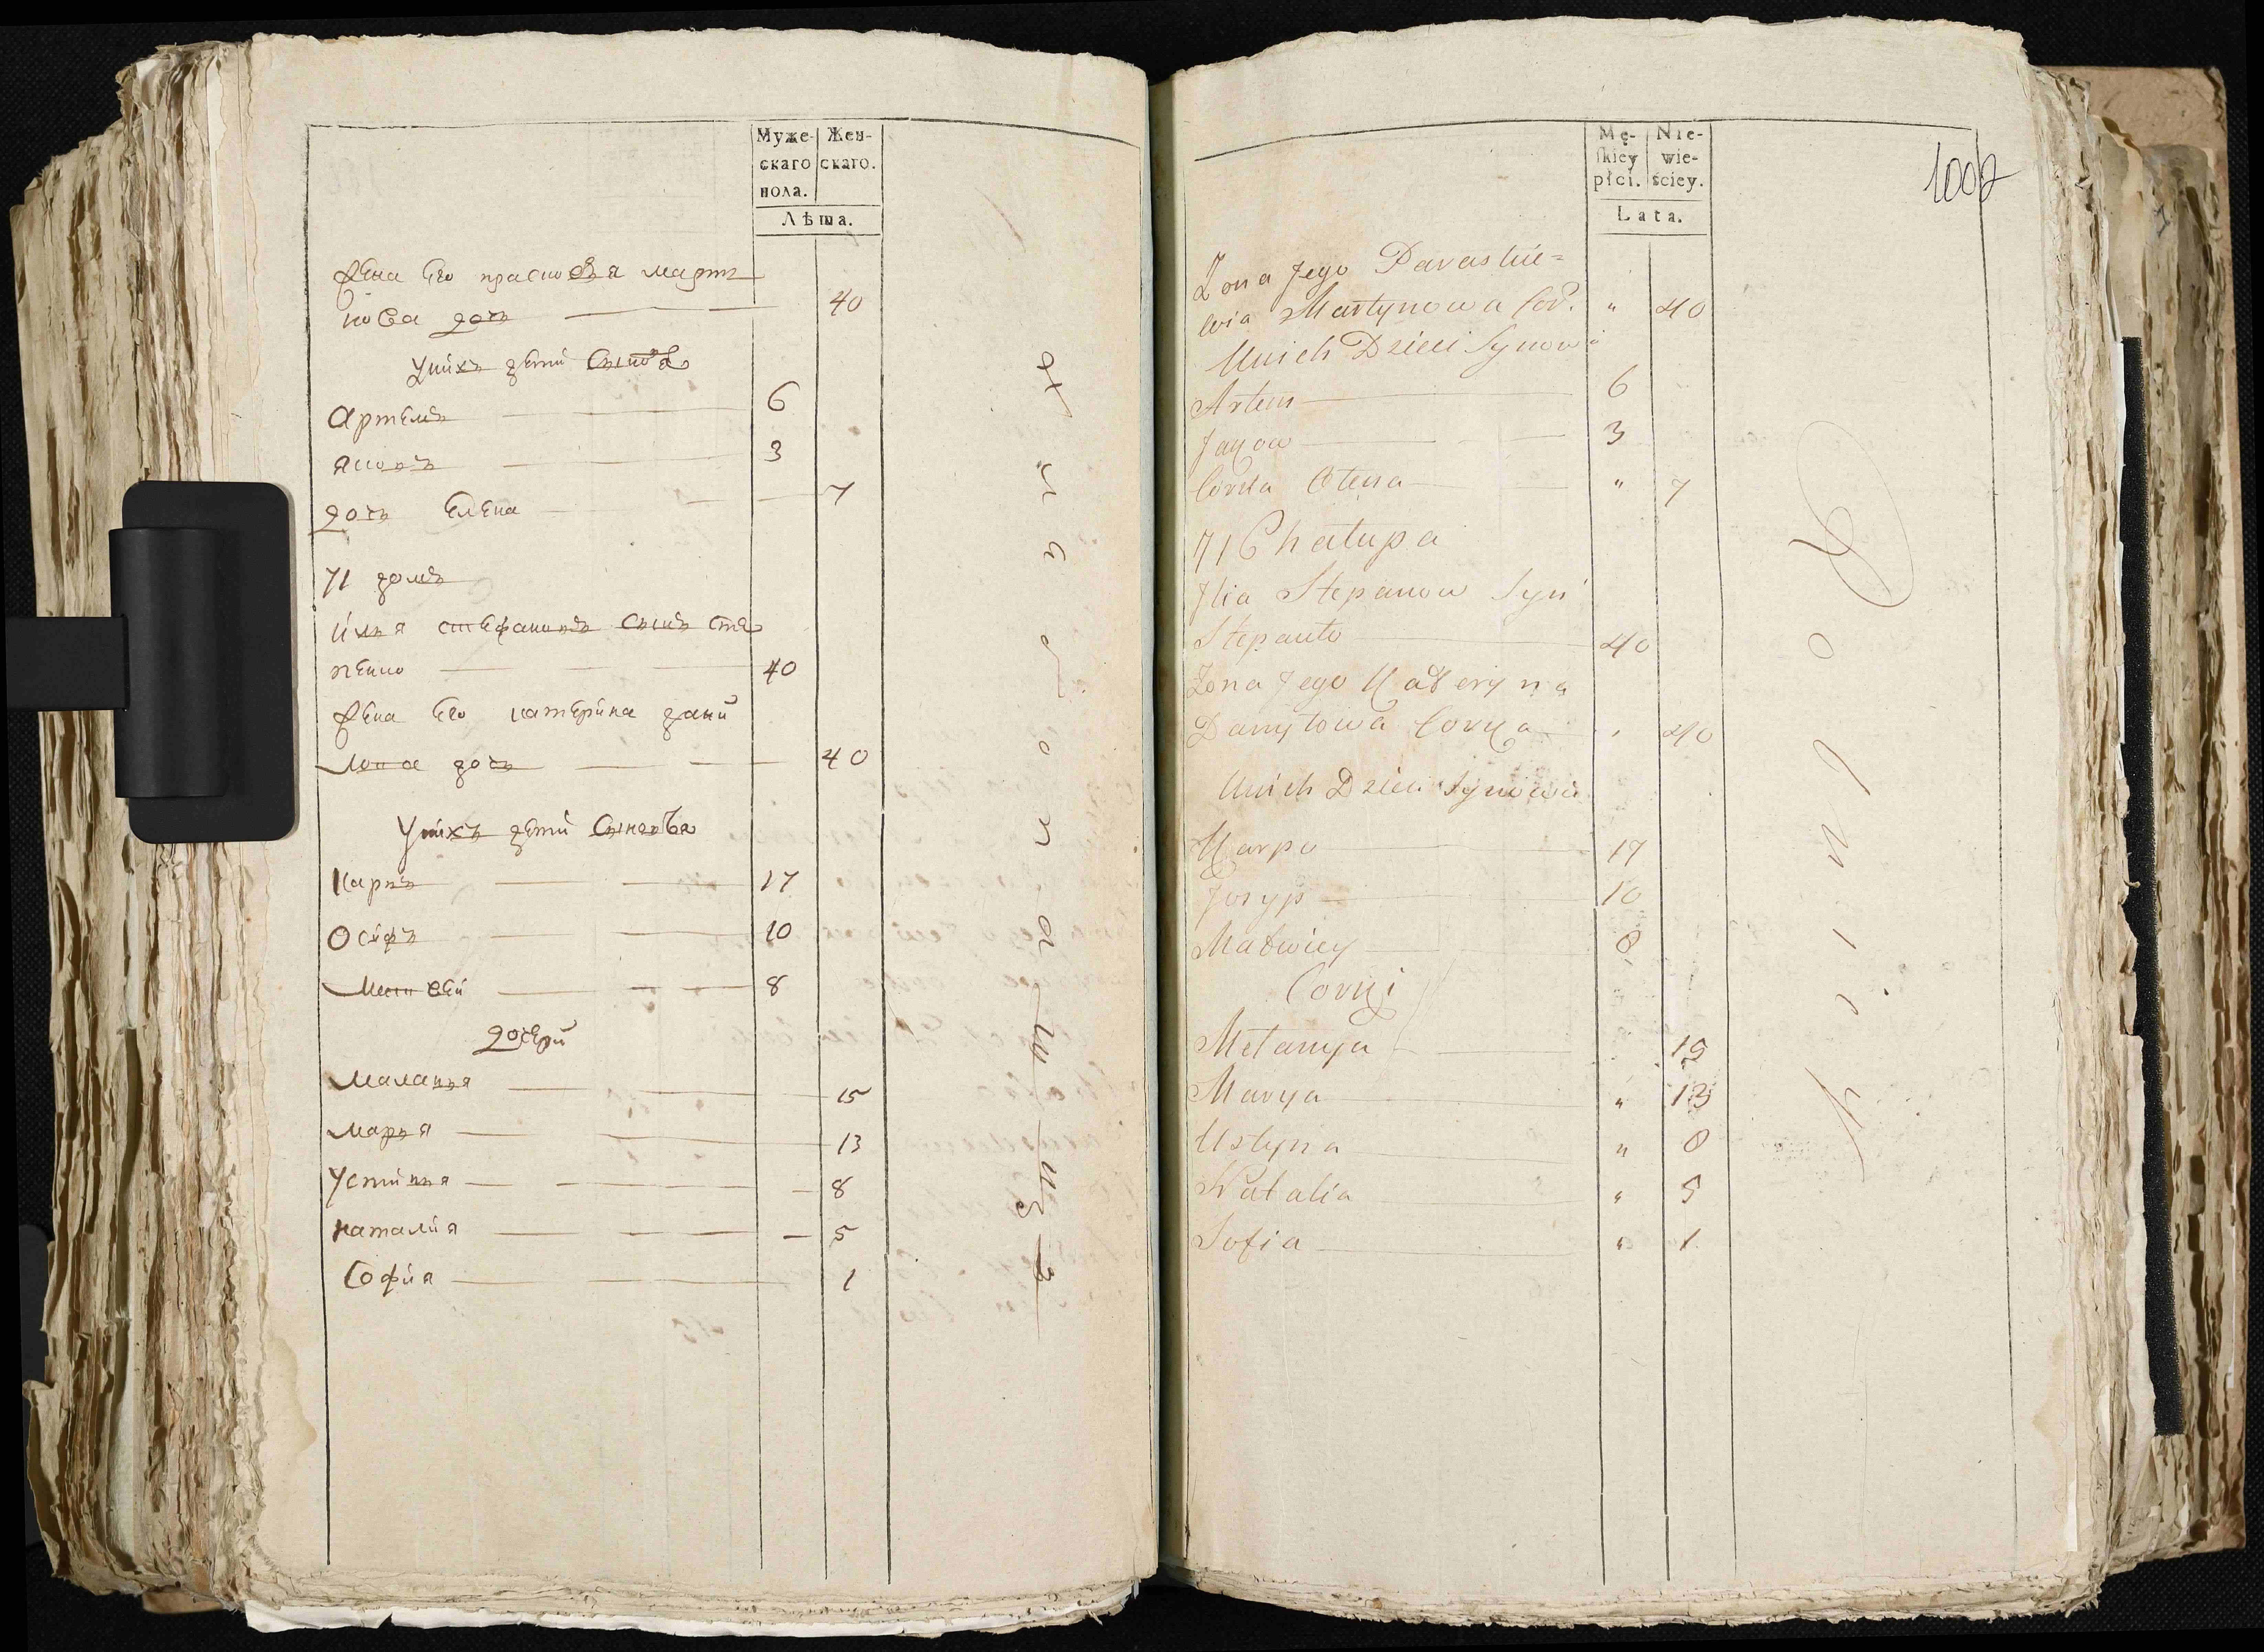 Муже-
скаго
пола.
Жен-
скаго.
Лѣта.
жена его прасковя марти
нова дочъ 40
унихъ дети Синовя
артемъ 6
яковъ 3
дочъ елена 7
71 домъ
илия стефановъ синъ сте
пенко 40
жена его катерина дани
лова дочъ 40
унихъ дети Синовѣя
карпъ 17
Осифъ 10
матвей 8
дочери
маланья 15
марья 13
устиння 8
наталия 5
София 1
Mę-
skiey
płci.
Nie-
wie-
ściey.
Lata.
1002
Zona Jego Paraskie=
wia Martynowa Cor. " 40
Unich Dzieci Synowi
Artem 6
Jakow 3
Corka Olena " 7
71 Chałupa
Ilia Stepanow Syn
Stepanko 40
Zona Jego Kateryna
Danyłowa Corka " 40
Unich Dzieci Synowie
Karpo 17
Josyp 10
Matwiey 8
Corki
Mełanija " 15
Marya " 13
Ustyna " 8
Natalia " 5
Sofia " 1